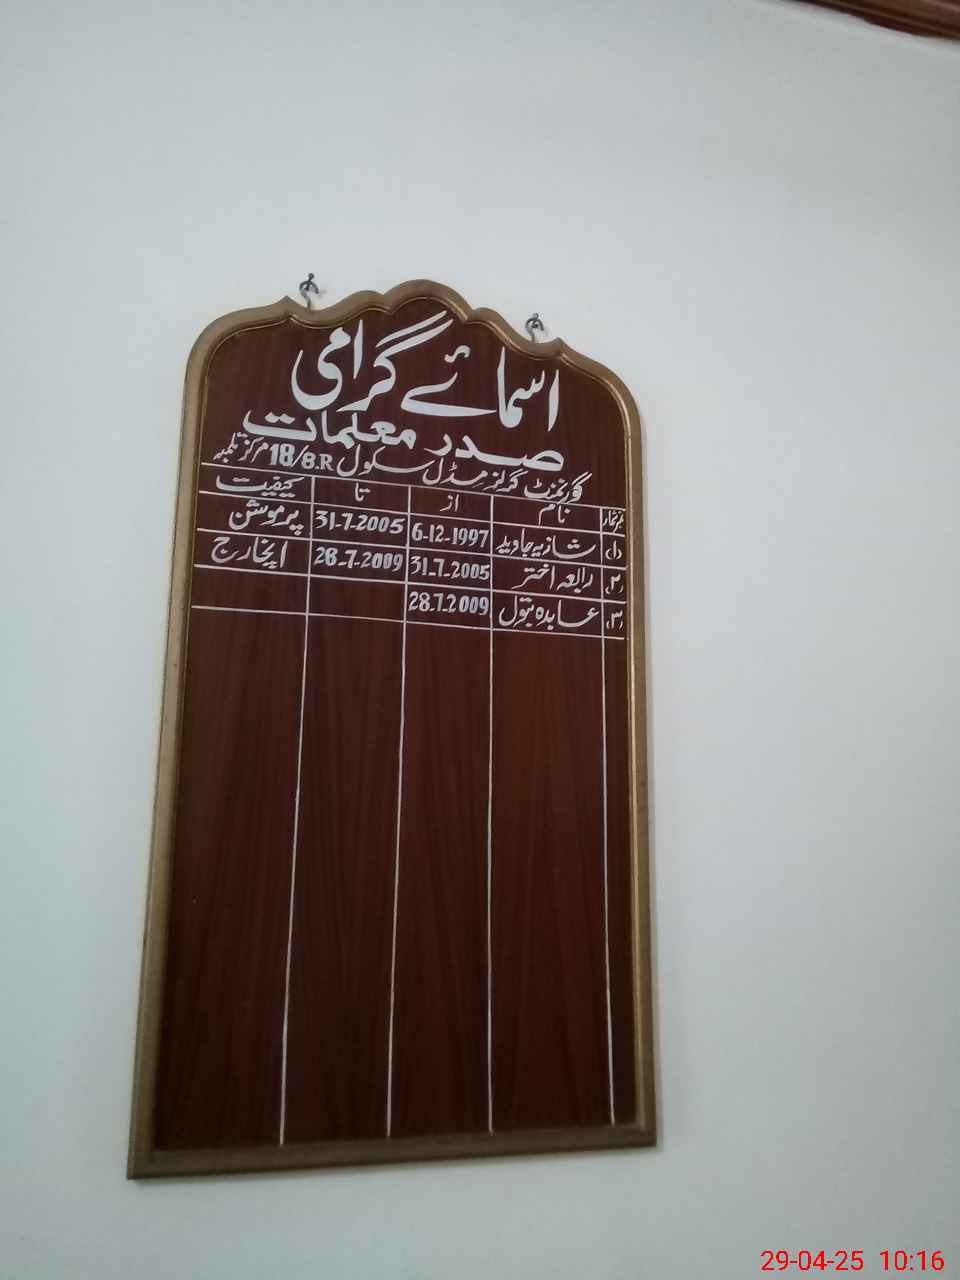 اسمائے گرامی
صدر معلمات
گورنمنٹ گرلز مڈل سکول 18/8.R مرکز تلمبہ
نمبر شمار نام از تا کیفیت
(۱) شازیہ جاوید 6-12-1997 31-7-2005 پرموشن
(۲) رابعہ اختر 31-7-2005 28-7-2009 انچارج
(۳) عابدہ بتول 28.7.2009
29-04-25 10:16